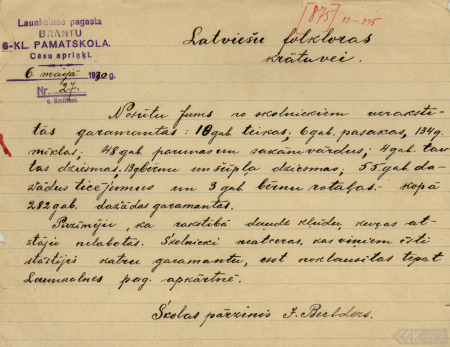 Launkalnes pagasta
BRANTU
6-KL. PAMATSKOLA.
Cēsu apriņķī.
6 maijā 1930 g.
Nr. 27.
c. Smiltenē.
[875] 12-375
Latviešu folkloras
krātuvei.
Nosūtu Jums no skolniekiem uzrakstī-
tās garamantas: 18 gab. teikas, 6 gab. pasakas, 134 g.
mīklas, 48 gab. parunas un sakāmvārdus; 4 gab. tau-
tas dziesmas, 13 g bērnu un šūpļa dziesmas, 55 gab. da-
žādus ticējumus un 3 gab. bērnu rotaļas. - Kopā
282 gab. dažādas garamantas.
Piezīmēju, ka rakstībā daudz kļūdu, kuŗas at-
stāju nelabotās. Skolnieki neatceras, kas viņiem īsti
stāstījis katru garamantu, esot noklausītas tepat
Launkalnes pag. apkārtnē.
Skolas pārzinis J.